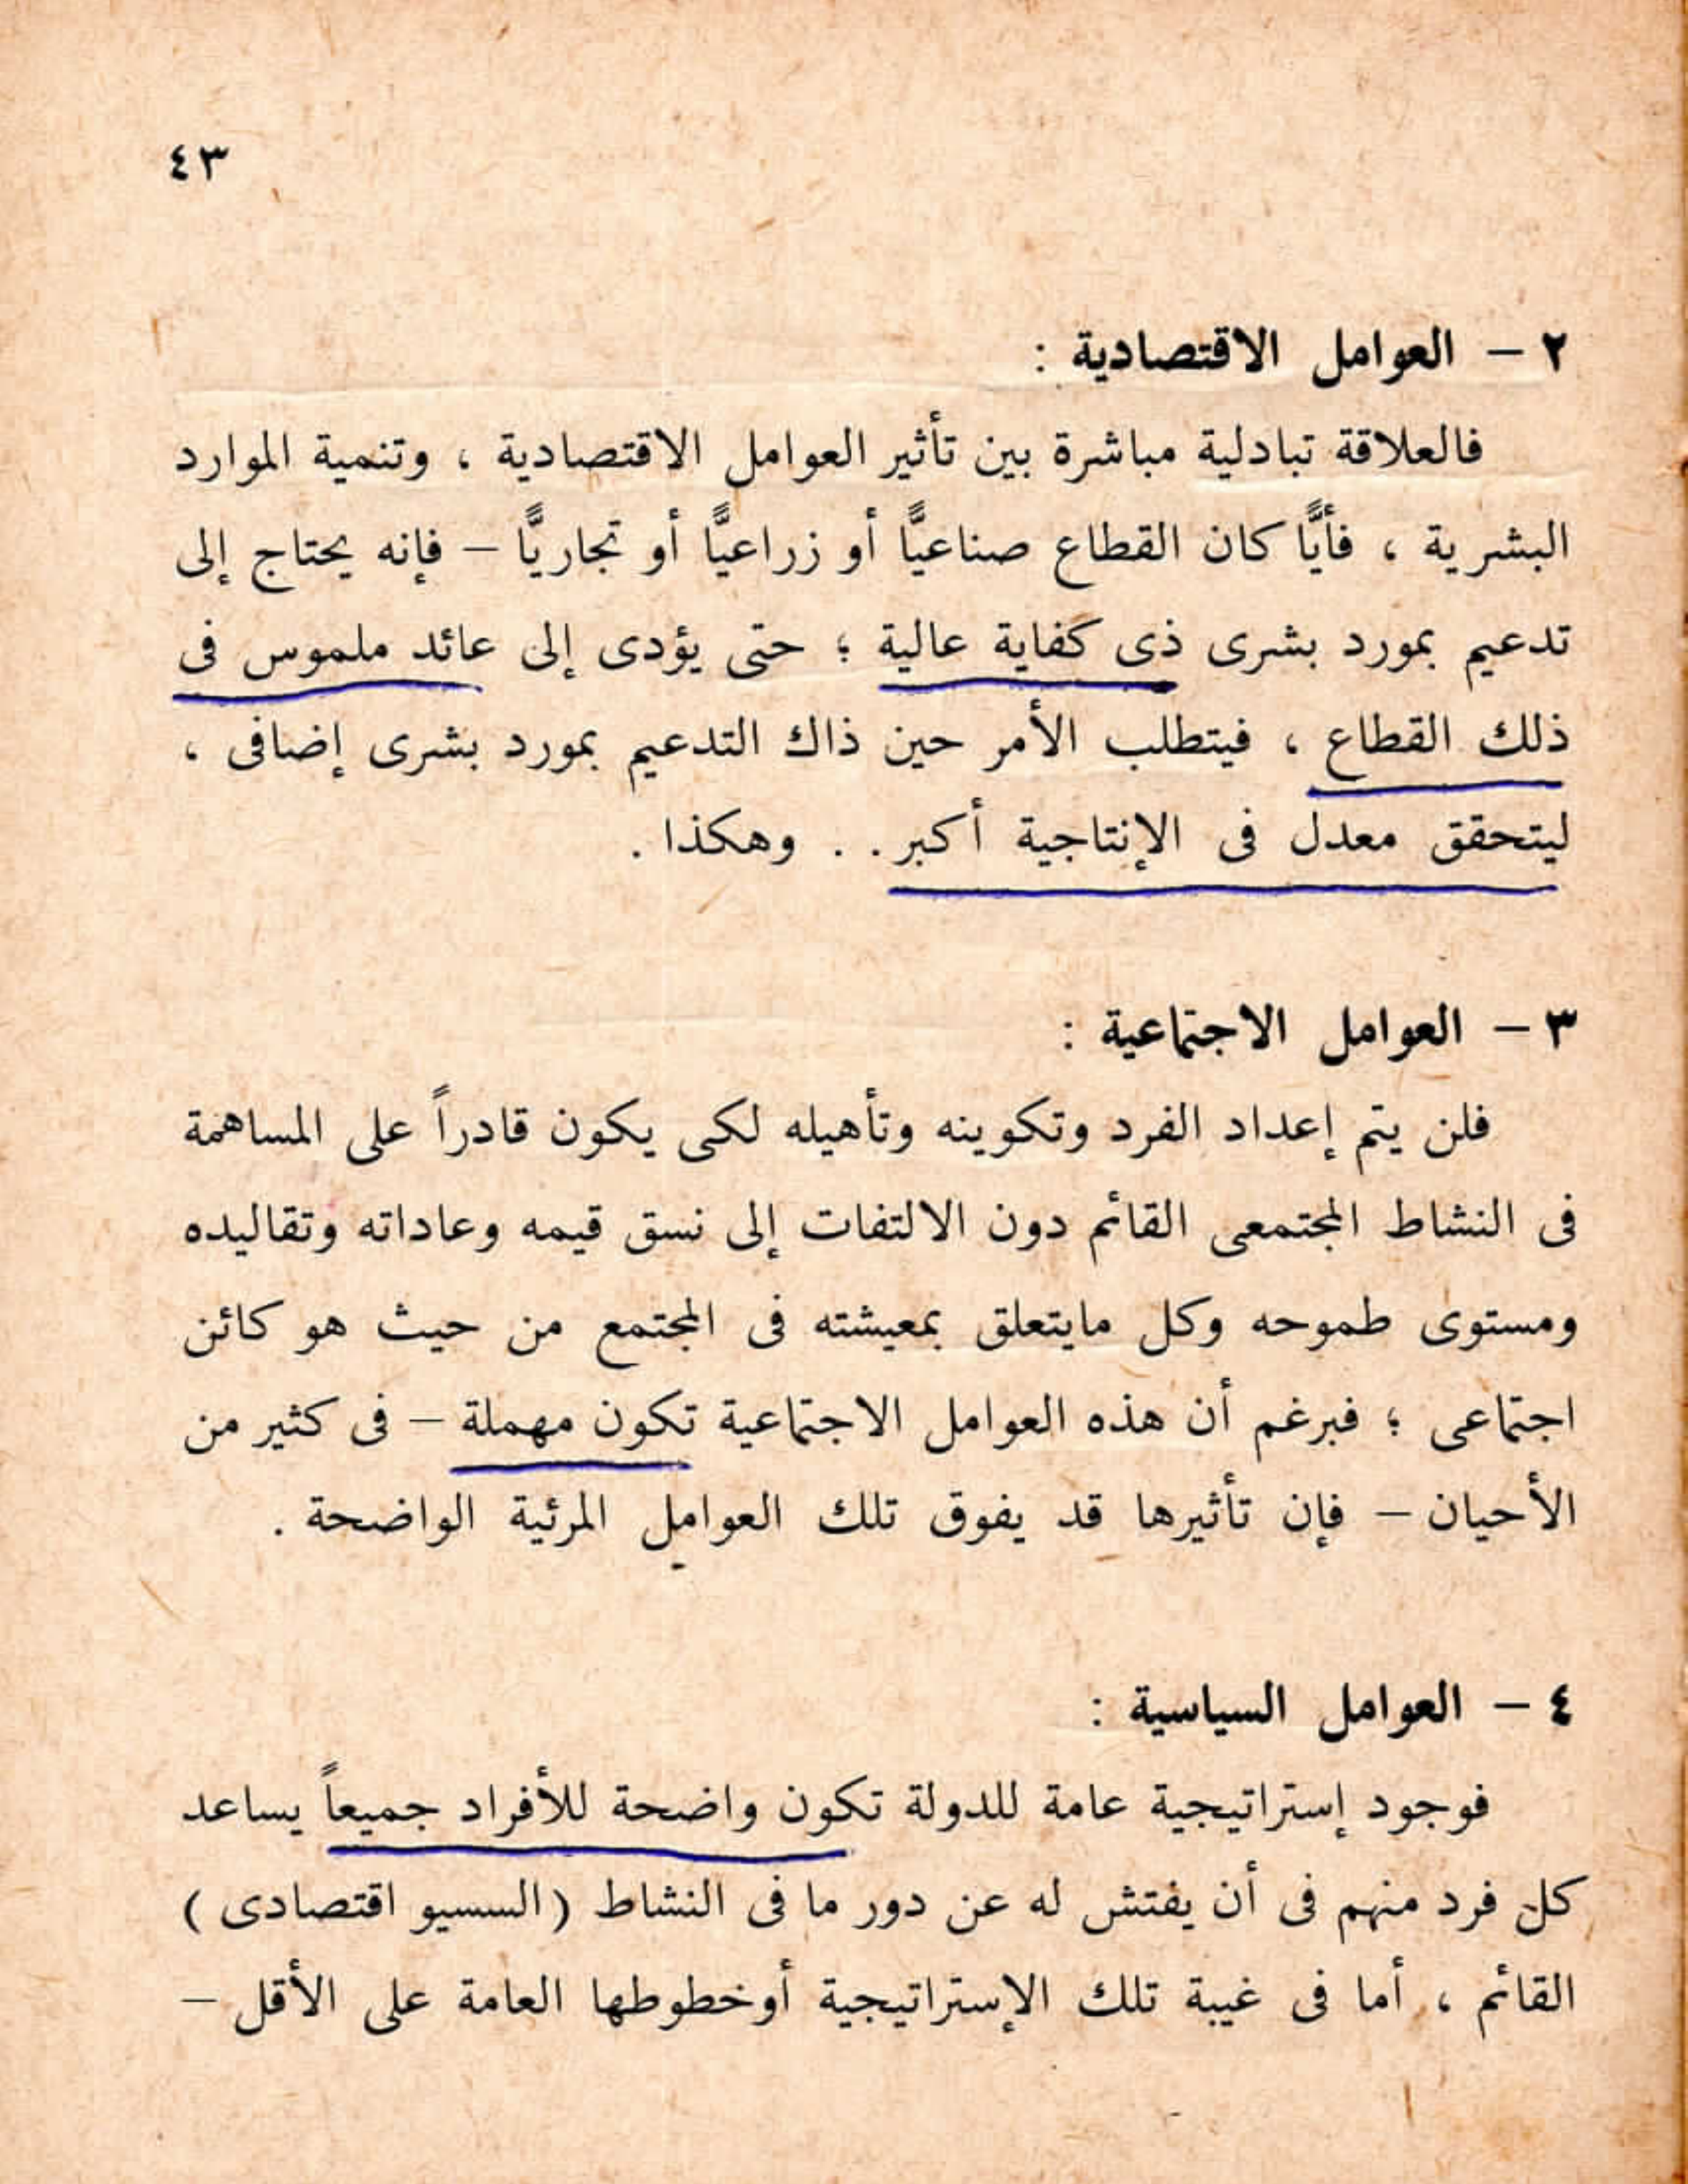 ٤٣
٢ – العوامل الاقتصادية :
فالعلاقة تبادلية مباشرة بين تأثير العوامل الاقتصادية ، وتنمية الموارد
البشرية ، فأيًّا كان القطاع صناعيًّا أو زراعيًّا أو تجاريًّا – فإنه يحتاج إلى
تدعيم بمورد بشرى ذى كفاية عالية ؛ حتى يؤدى إلى عائد ملموس فى
ذلك القطاع ، فيتطلب الأمر حين ذاك التدعيم بمورد بشرى إضافى ،
ليتحقق معدل فى الإنتاجية أكبر . . وهكذا .
٣ – العوامل الاجتماعية :
فلن يتم إعداد الفرد وتكوينه وتأهيله لكى يكون قادراً على المساهمة
فى النشاط المجتمعى القائم دون الالتفات إلى نسق قيمه وعاداته وتقاليده
ومستوى طموحه وكل مايتعلق بمعيشته فى المجتمع من حيث هو كائن
اجتماعى ؛ فبرغم أن هذه العوامل الاجتماعية تكون مهملة – فى كثير من
الأحيان – فإن تأثيرها قد يفوق تلك العوامل المرئية الواضحة .
٤ – العوامل السياسية :
فوجود إستراتيجية عامة للدولة تكون واضحة للأفراد جميعاً يساعد
كل فرد منهم فى أن يفتش له عن دور ما فى النشاط ( السسيو اقتصادى )
القائم ، أما فى غيبة تلك الإستراتيجية أوخطوطها العامة على الأقل –